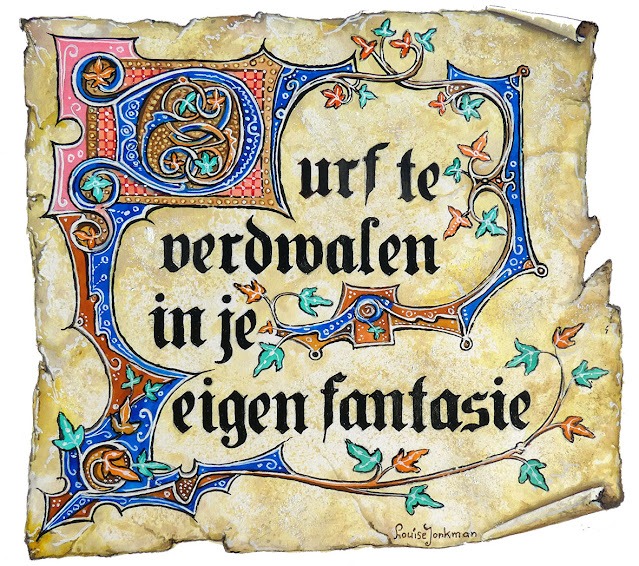 Durf te
verdwalen
in je
eigen fantasie
Louise Jonkman